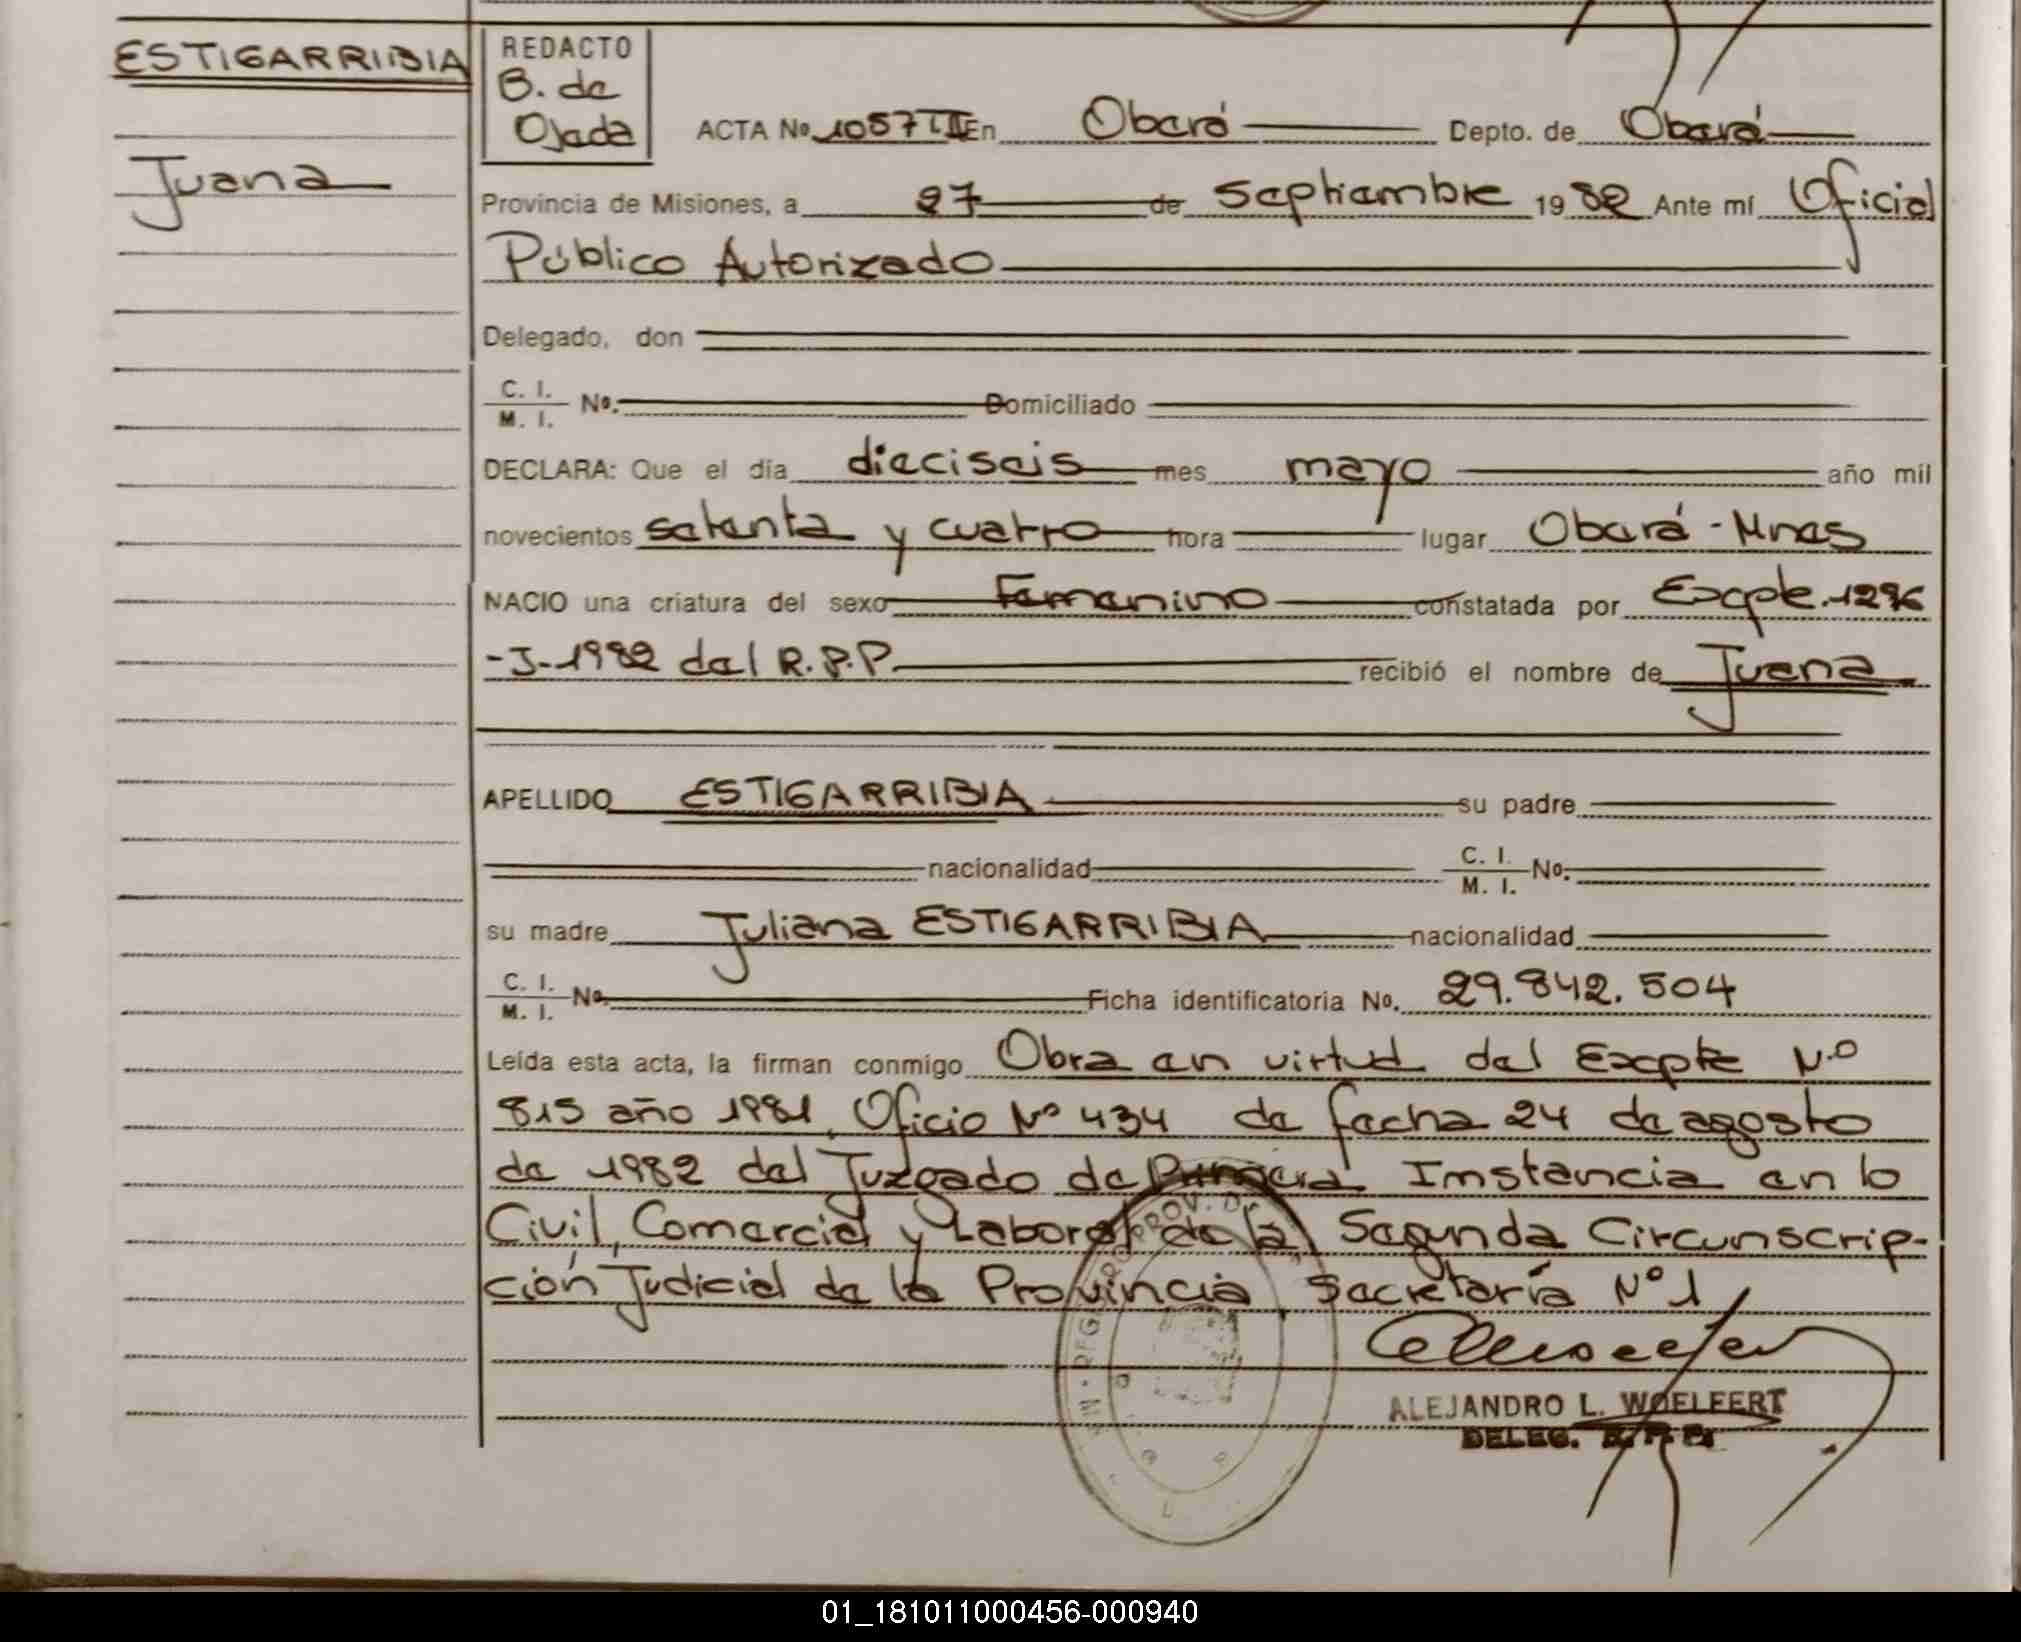 ESTIGARRIBIA
Juana
REDACTO
B. de
Ojeda
ACTA No 1057 TII En Oberá Depto. de Oberá
Provincia de Misiones, a 27 de Septiembre 1982 Ante mí Oficial
Público Autorizado
Delegado, don
C. I. M. I. No. Domiciliado
DECLARA: Que el día dieciseis mes mayo año mil
novecientos setenta y cuatro hora lugar Oberá - Mnes
NACIO una criatura del sexo Femenino constatada por Expte. 1296
-J-1982 del R.P.P. recibió el nombre de Juana
APELLIDO ESTIGARRIBIA su padre
nacionalidad C. I. M. I. No.
su madre Juliana ESTIGARRIBIA nacionalidad
C. I. M. I. No. Ficha identificatoria No. 29.842.504
Leída esta acta, la firman conmigo Obra en virtud del Expte N.o
815 año 1981, Oficio No 434 de fecha 24 de agosto
de 1982 del Juzgado de Primera Instancia en lo
Civil, Comercial y Laboral de la Segunda Circunscrip-
ción Judicial de la Provincia, Secretaría No 1
ALEJANDRO L. WOELFERT
DELEG. R. P. P.
01_181011000456-000940